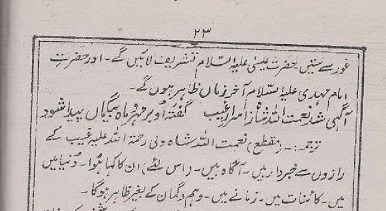 ۲۳
غور سے سنیں حضرت عیسیٰ علیہ السلام تشریف لائیں گے۔ اور حضرت
امام مہدی علیہ السلام آخر زماں ظاہر ہوں گے۔
آگہی شد نعمت اللہ شاہ ز اسرار غیب گفتۂ او بر مہر و ماہ بیگماں پیدا شود
ترجمہ:۔ (مقطع) نعمت اللہ شاہ ولی رحمۃ اللہ علیہ غیب کے
رازوں سے خبردار ہیں۔ آگاہ ہیں۔ (اس لئے) ان کا کہا ہوا۔ دنیا میں
میں۔ کائنات میں۔ زمانے میں۔ وہم و گمان کے بغیر ظاہر ہوگا۔